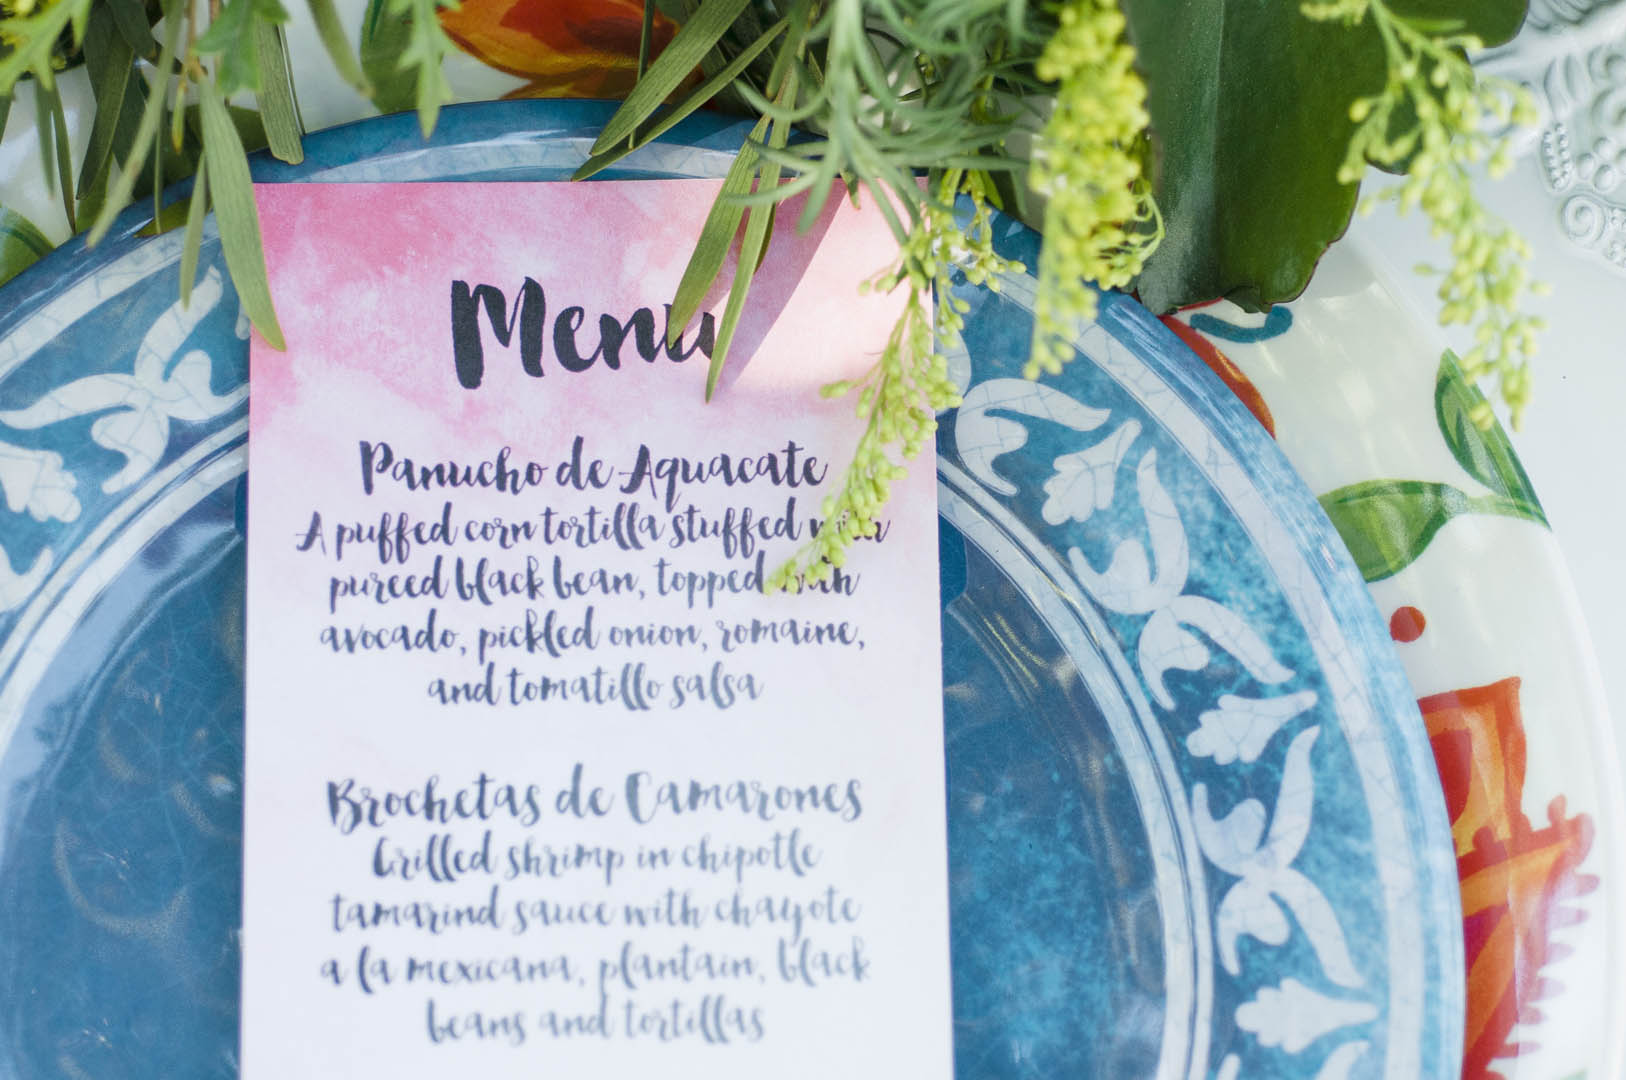 Menu
Panucho de Aguacate
A puffed corn tortilla stuffed with
pureed black bean, topped with
avocado, pickled onion, romaine,
and tomatillo salsa
Brochetas de Camarones
Grilled shrimp in chipotle
tamarind sauce with chayote
a la mexicana, plantain, black
beans and tortillas